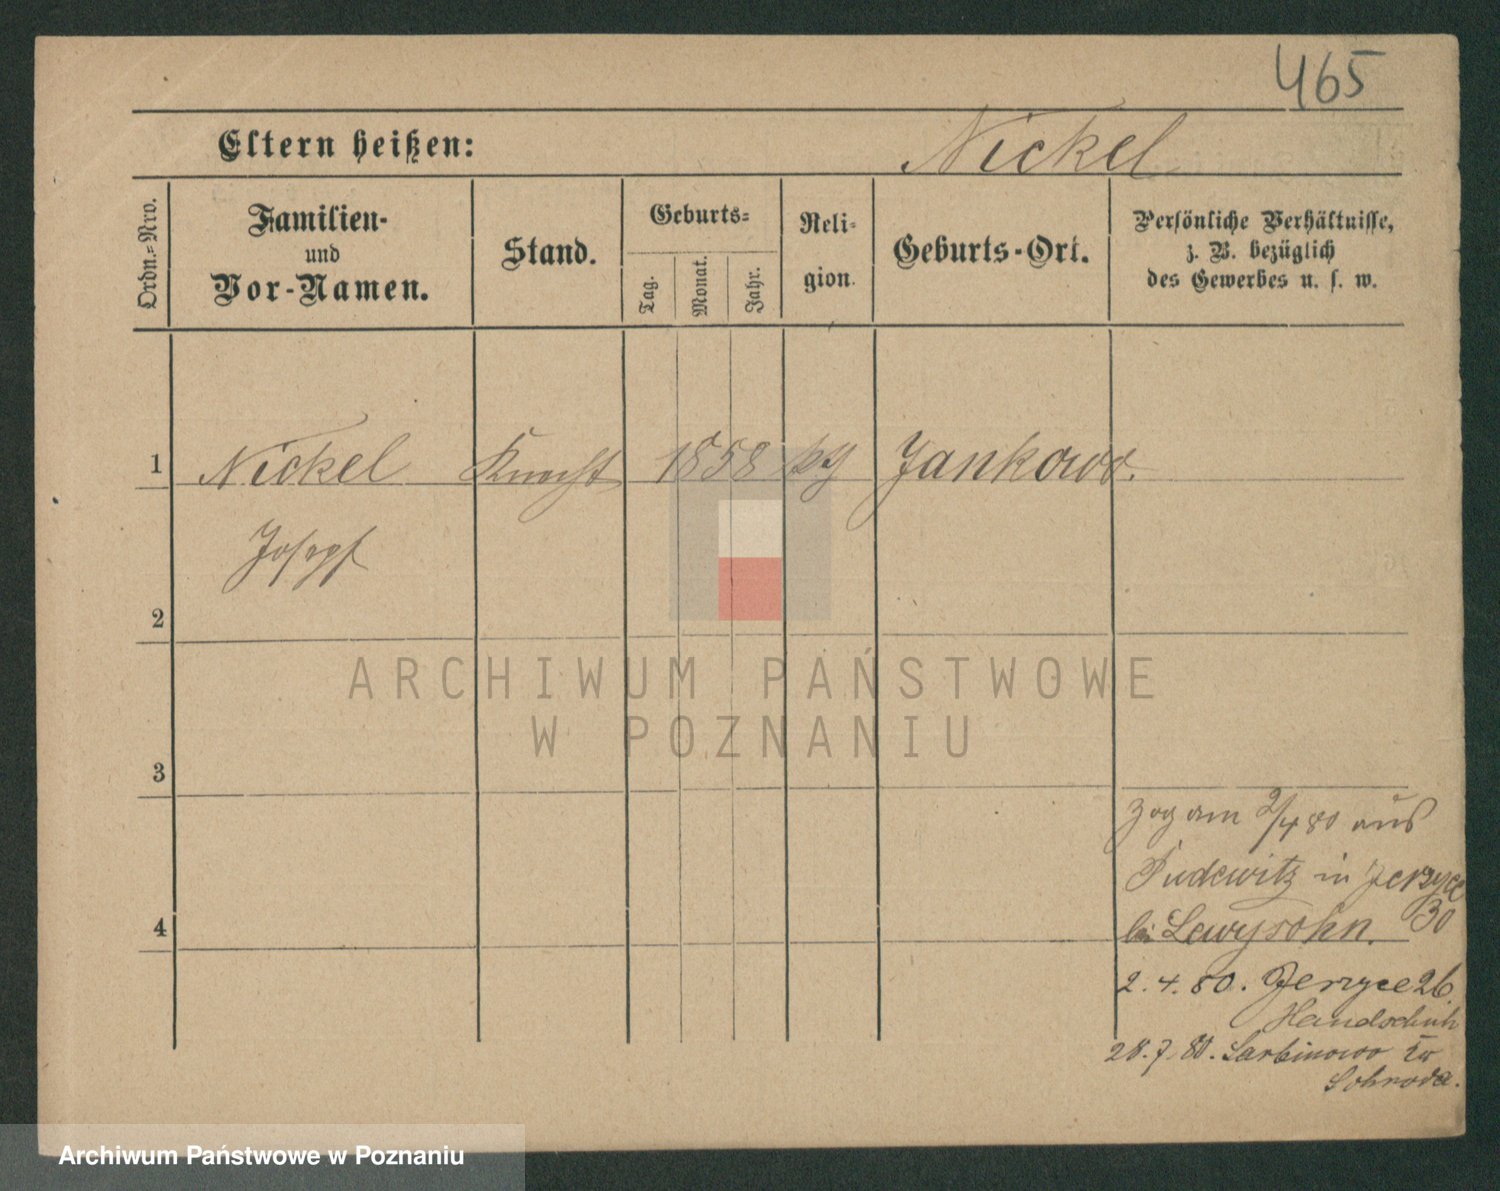 465
Eltern heißen: Nickel
Ordn.=Nro.
Familien-
und
Vor-Namen.
Stand.
Geburts=
Tag.
Monat.
Jahr.
Reli-
gion.
Geburts-Ort.
Persönliche Verhältnisse,
z. B. bezüglich
des Gewerbes u. s. w.
1 Nickel Knecht 1858 Jankowo.
Joseph
2
3
4
zog am 2/4 80 aus
Pudewitz in Jerzyce
30
bei Lewysohn.
2. 4. 80. Jerzyce 26.
Handschuh
28. 7. 80. Sarbinowo
Schroda.
ARCHIWUM PAŃSTWOWE
W POZNANIU
Archiwum Państwowe w Poznaniu